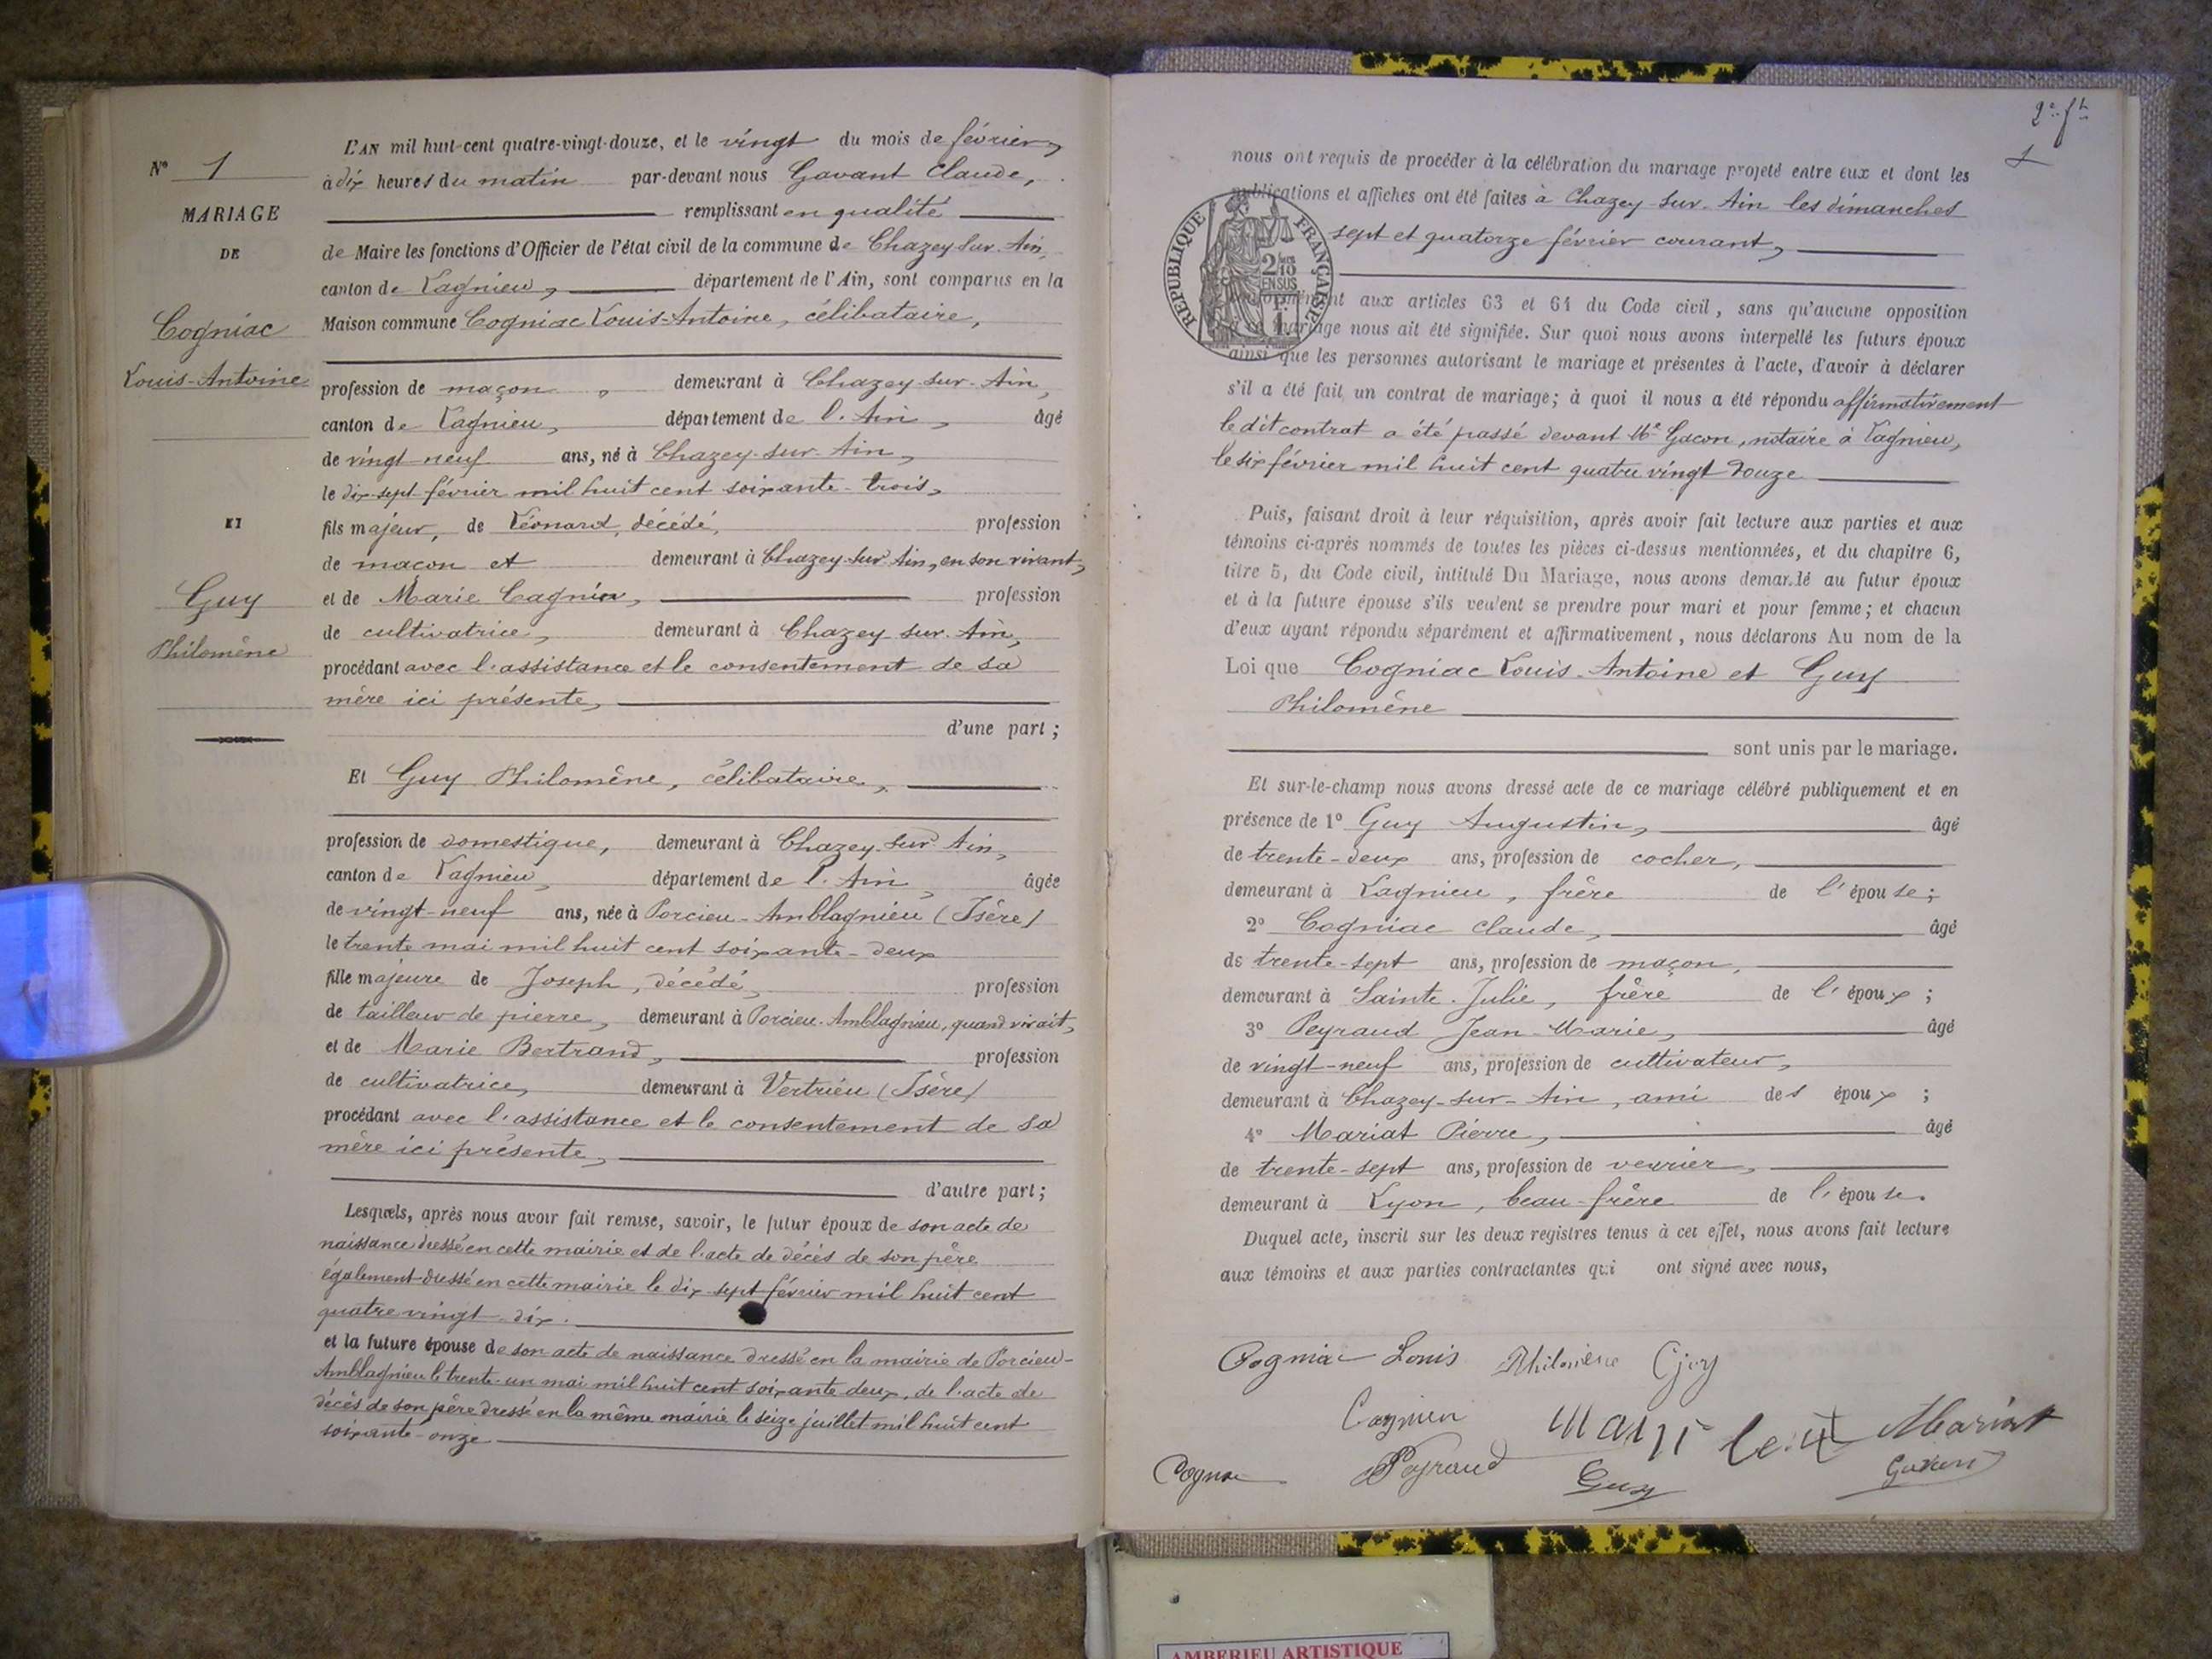 N° 1
MARIAGE
DE
Cogniac
Louis-Antoine
ET
Guy
Philomène
L'AN mil huit-cent quatre-vingt-douze, et le vingt du mois de février,
à dix heures du matin par-devant nous Gavant Claude,
remplissant en qualité
de Maire les fonctions d'Officier de l'état civil de la commune de Chazey-sur-Ain,
canton de Lagnieu, département de l'Ain, sont comparus en la
Maison commune Cogniac Louis-Antoine, célibataire,
profession de maçon, demeurant à Chazey-sur-Ain,
canton de Lagnieu, département de l'Ain, âgé
de vingt-neuf ans, né à Chazey-sur-Ain,
le dix-sept février mil huit cent soixante-trois,
fils majeur, de Léonard, décédé, profession
de maçon et demeurant à Chazey-sur-Ain, en son vivant,
et de Marie Cagnin, profession
de cultivatrice, demeurant à Chazey-sur-Ain,
procédant avec l'assistance et le consentement de sa
mère ici présente,
d'une part;
Et Guy Philomène, célibataire,
profession de domestique, demeurant à Chazey-sur-Ain,
canton de Lagnieu, département de l'Ain, âgée
de vingt-neuf ans, née à Porcieu-Amblagnieu (Isère)
le trente mai mil huit cent soixante-deux
fille majeure de Joseph, décédé, profession
de tailleur de pierre, demeurant à Porcieu-Amblagnieu, quand vivait,
et de Marie Bertrand, profession
de cultivatrice, demeurant à Vertrieu (Isère)
procédant avec l'assistance et le consentement de sa
mère ici présente,
d'autre part;
Lesquels, après nous avoir fait remise, savoir, le futur époux de son acte de
naissance dressé en cette mairie et de l'acte de décès de son père
également dressé en cette mairie le dix-sept février mil huit cent
quatre vingt-dix.
et la future épouse de son acte de naissance dressé en la mairie de Porcieu-
Amblagnieu le trente-un mai mil huit cent soixante deux, de l'acte de
décès de son père dressé en la même mairie le seize juillet mil huit cent
soixante-onze
2e ft
1
nous ont requis de procéder à la célébration du mariage projeté entre eux et dont les
publications et affiches ont été faites à Chazey-sur-Ain les dimanches
sept et quatorze février courant,
RÉPUBLIQUE FRANÇAISE
2/10 EN SUS
conformément aux articles 63 et 64 du Code civil, sans qu'aucune opposition
à ce mariage nous ait été signifiée. Sur quoi nous avons interpellé les futurs époux
ainsi que les personnes autorisant le mariage et présentes à l'acte, d'avoir à déclarer
s'il a été fait un contrat de mariage; à quoi il nous a été répondu affirmativement
le dit contrat a été passé devant Me Gacon, notaire à Lagnieu,
le six février mil huit cent quatre vingt douze
Puis, faisant droit à leur réquisition, après avoir fait lecture aux parties et aux
témoins ci-après nommés de toutes les pièces ci-dessus mentionnées, et du chapitre 6,
titre 5, du Code civil, intitulé Du Mariage, nous avons demandé au futur époux
et à la future épouse s'ils veulent se prendre pour mari et pour femme; et chacun
d'eux ayant répondu séparément et affirmativement, nous déclarons Au nom de la
Loi que Cogniac Louis-Antoine et Guy
Philomène
sont unis par le mariage.
Et sur-le-champ nous avons dressé acte de ce mariage célébré publiquement et en
présence de 1° Guy Augustin, âgé
de trente-deux ans, profession de cocher,
demeurant à Lagnieu, frère de l'épouse;
2° Cogniac Claude, âgé
de trente-sept ans, profession de maçon,
demeurant à Sainte-Julie, frère de l'époux;
3° Peyraud Jean-Marie, âgé
de vingt-neuf ans, profession de cultivateur,
demeurant à Chazey-sur-Ain, ami des époux;
4° Mariat Pierre, âgé
de trente-sept ans, profession de verrier,
demeurant à Lyon, beau-frère de l'épouse.
Duquel acte, inscrit sur les deux registres tenus à cet effet, nous avons fait lecture
aux témoins et aux parties contractantes qui ont signé avec nous,
Cogniac Louis Philomène Guy
Cagnien Mariat
Cogniac Peyraud Guy Gavant
AMBERIEU ARTISTIQUE